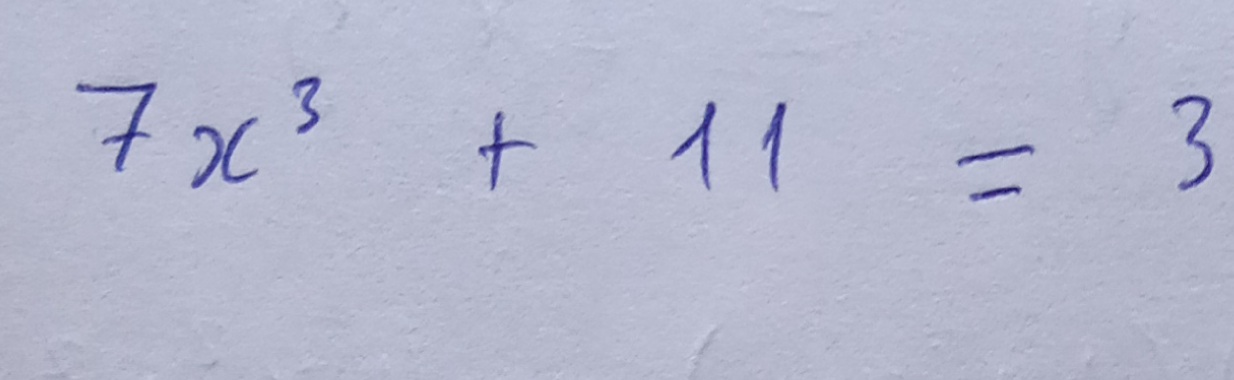 7x³ + 11 = 3